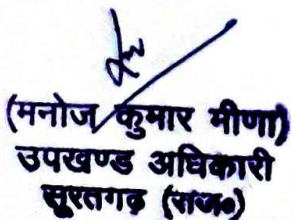 (मनोज कुमार मीणा)
उपखण्ड अधिकारी
सूरतगढ़ (राज०)